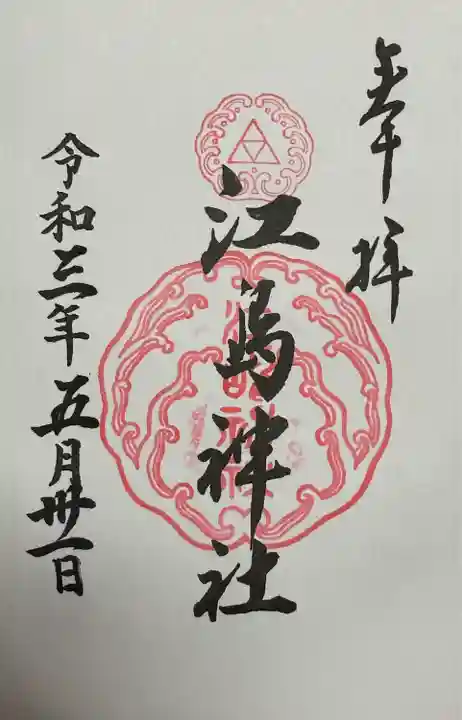 奉拝
江島神社
令和三年五月卅一日